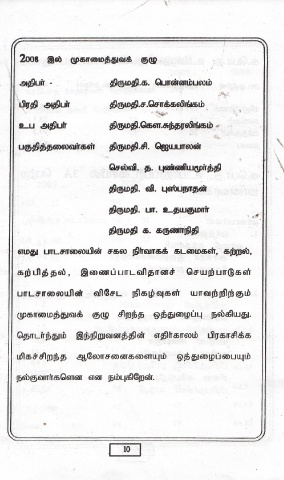 2008 இல் முகாமைத்துவக் குழு
அதிபர் - திருமதி.க. பொன்னம்பலம்
பிரதி அதிபர் திருமதி.ச.சொக்கலிங்கம்
உப அதிபர் திருமதி.கௌ.சுந்தரலிங்கம் -
பகுதித்தலைவர்கள் திருமதி.சி. ஜெயபாலன்
செல்வி. த. புண்ணியமூர்த்தி
திருமதி. வி. புஸ்பநாதன்
திருமதி. பா. உதயகுமார்
திருமதி க. கருணாநிதி
எமது பாடசாலையின் சகல நிர்வாகக் கடமைகள், கற்றல்,
கற்பித்தல், இணைப்பாடவிதானச் செயற்பாடுகள்
பாடசாலையின் விசேட நிகழ்வுகள் யாவற்றிற்கும்
முகாமைத்துவக் குழு சிறந்த ஒத்துழைப்பு நல்கியது.
தொடர்ந்தும் இந்நிறுவனத்தின் எதிர்காலம் பிரகாசிக்க
மிகச்சிறந்த ஆலோசனைகளையும் ஒத்துழைப்பையும்
நல்குவார்களென என நம்புகிறேன்.
10